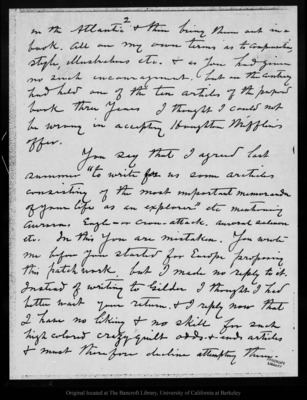 2
in the Atlantic & then bring them out in a
book. All on my own terms as to compactness
style, illustrations etc. & as you had given
no such encouragement. but on the contrary
had held one of the ten articles of the proposed
book three years I thought I could not
be wrong in accepting Houghton Mifflins
offer.
You say that I agreed last
summer "to write for us some articles
consisting of the most important memoranda
of your life as an explorer" etc mentioning
Auroras. Eagle on crow-attack.
etc. In this you are mistaken. You wrote
me before you started for Europe proposing
this patchwork but I made no reply to it.
Instead of writing to Gilder I thought I had
better wait your return. & I reply now that
I have no liking & no skill for such
high colored crazyquilt odds & ends articles
& must therefore decline attempting them.
BANCROFT
LIBRARY
Original located at The Bancroft Library, University of California at Berkeley